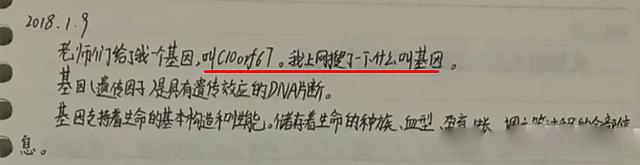 2018.1.9
老师们给了我一个基因,叫C10orf67。我上网搜了一下什么叫基因。
基因(遗传因子)是具有遗传效应的DNA片断。
基因支持着生命的基本构造和性能。储存着生命的种族、血型、孕育
息。